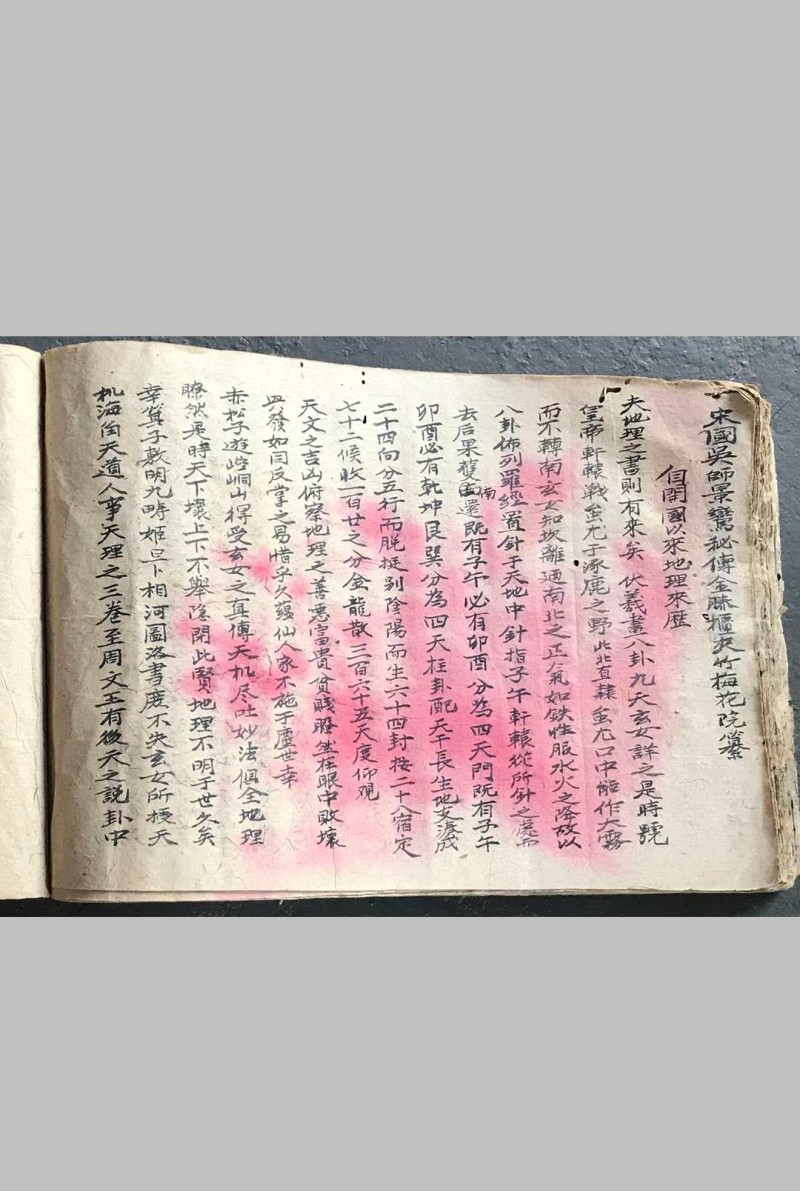 宋國吳師景鸞秘傳金㬵櫃夾竹梅花院纂
自開國以來地理來歷
夫地理之書則有來矣伏羲畫八卦九天玄女詳之是時號
皇帝軒轅戰蚩尤于涿鹿之野此北直隸蚩尤口中能作大霧
而不轉南玄女知坎離廼南北之正氣如鉄性服水火之降故以
八卦佈列羅經置針于天地中針指子午軒轅從所針之處而
去后果獲南還既有子午必有卯酉分為四天門既有子午
卯酉必有乾坤艮巽分為四天柱卦配天干長生地支湊成
二十四向分五行而脫挺别陰陽而生六十四封按二十八宿定
七十二候收一百廿之分金龍散三百六十五天度仰觀
天文之吉凶俯察地理之善惡富貴貧賤證然在眼中敗壞
並發如同反掌之易惜乎久蘊仙人家不施于塵世幸
赤松子遊崆峒山得受玄女之真傳天机尽吐妙法俱全地理
瞭然界時天下壞上下不舉隐閉此賢地理不明于世久矣
幸箕子敷明九疇姬旦卜相河圖洛書度不失玄女所授天
机海角天道人事天理之三巻至周文王有後天之説卦中